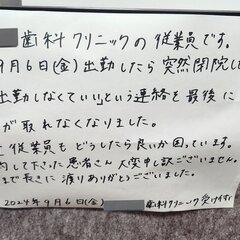 歯科クリニックの従業員です。
9月6日(金)出勤したら突然閉院し
出勤しなくていい」という連絡を最後に
が取れなくなりました。
従業員もどうしたら良いか困っています。
して下さった患者さん大変申し訳ございません。
まで長きに渡りありがとうございました。
2024年9月6日(金)
歯科クリニック受付